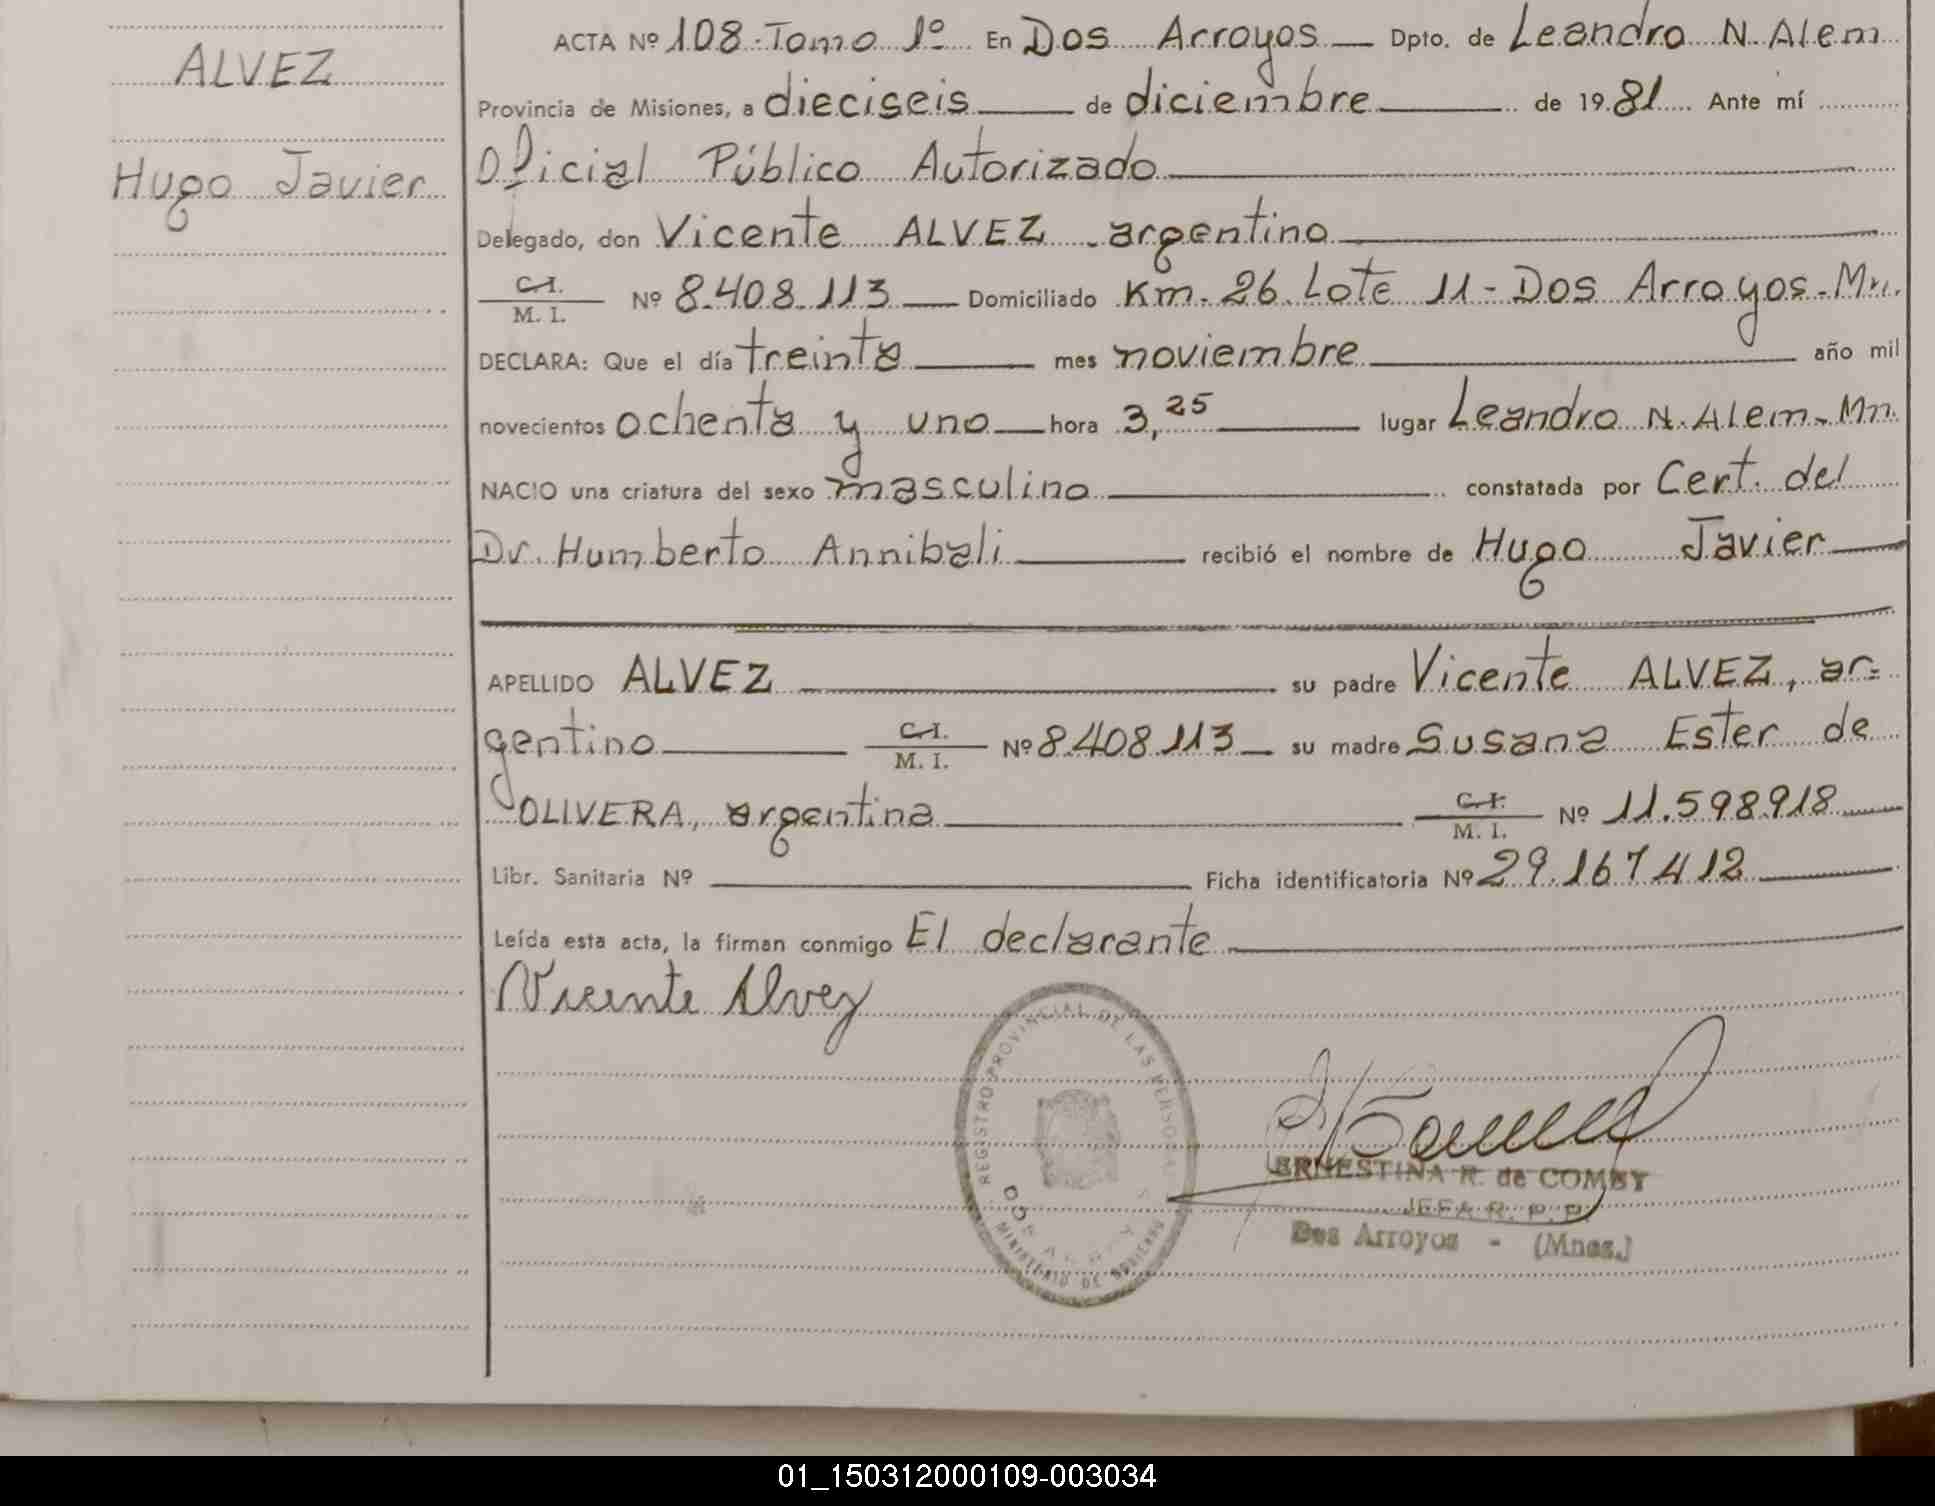 ALVEZ
Hugo Javier
ACTA Nº 108 - Tomo 1º En Dos Arroyos Dpto. de Leandro N. Alem
Provincia de Misiones, a dieciseis de diciembre de 1981 Ante mí
Oficial Público Autorizado
Delegado, don Vicente ALVEZ - argentino
C.I. / M. I. Nº 8.408.113 Domiciliado Km. 26 Lote 11 - Dos Arroyos - Mn.
DECLARA: Que el día treinta mes noviembre año mil
novecientos ochenta y uno hora 3,25 lugar Leandro N. Alem - Mn.
NACIO una criatura del sexo masculino constatada por Cert. del
Dr. Humberto Annibali recibió el nombre de Hugo Javier
APELLIDO ALVEZ su padre Vicente ALVEZ, ar=
gentino C.I. / M. I. Nº 8.408.113 su madre Susana Ester de
OLIVERA, argentina C.I. / M. I. Nº 11.598.918
Libr. Sanitaria Nº Ficha identificatoria Nº 29.167.412
Leída esta acta, la firman conmigo El declarante
Vicente Alvez
REGISTRO PROVINCIAL DE LAS PERSONAS
DOS ARROYOS
MINISTERIO DE GOBIERNO
ERNESTINA R. de COMBY
JEFA R. P. P.
Dos Arroyos - (Mnes.)
01_150312000109-003034